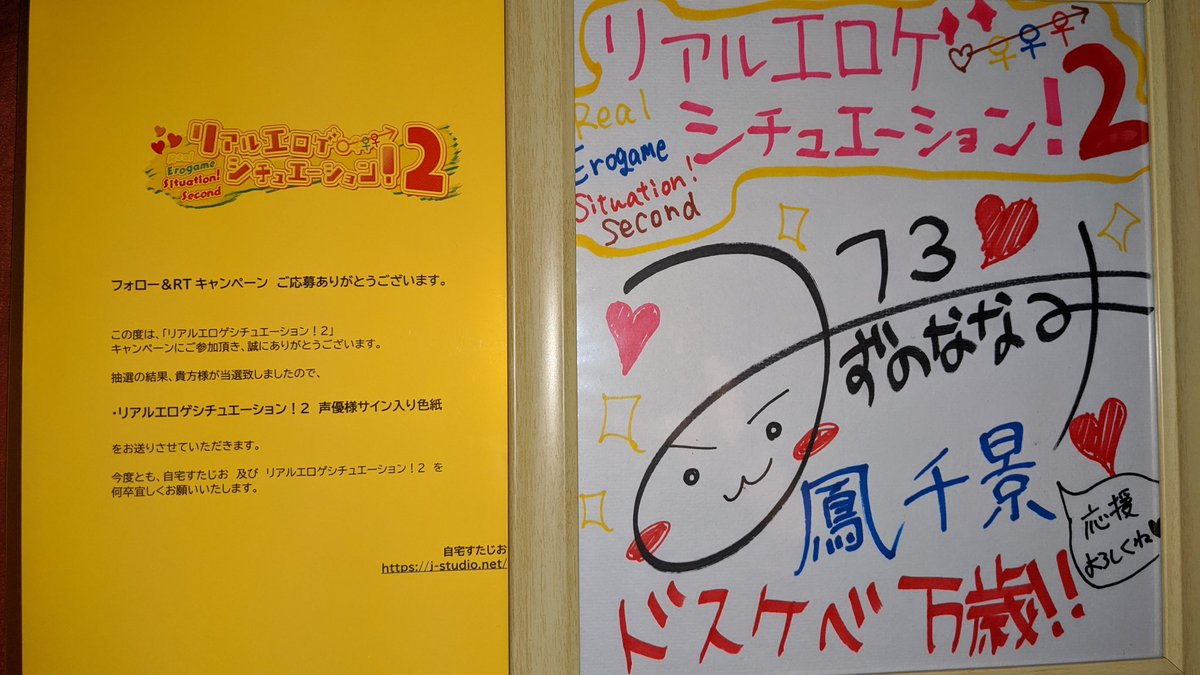 リアルエロゲ
シチュエーション!2
Real
Erogame
Situation!
Second
フォロー&RTキャンペーン ご応募ありがとうございます。
この度は、「リアルエロゲシチュエーション!2」
キャンペーンにご参加頂き、誠にありがとうございます。
抽選の結果、貴方様が当選致しましたので、
・リアルエロゲシチュエーション!2 声優様サイン入り色紙
をお送りさせていただきます。
今度とも、自宅すたじお 及び リアルエロゲシチュエーション!2 を
何卒宜しくお願いいたします。
自宅すたじお
https://j-studio.net/
リアルエロゲ
シチュエーション!2
Real
Erogame
Situation!
Second
73
ずのななみ
鳳千景
応援
よろしくね
ドスケベ万歳!!